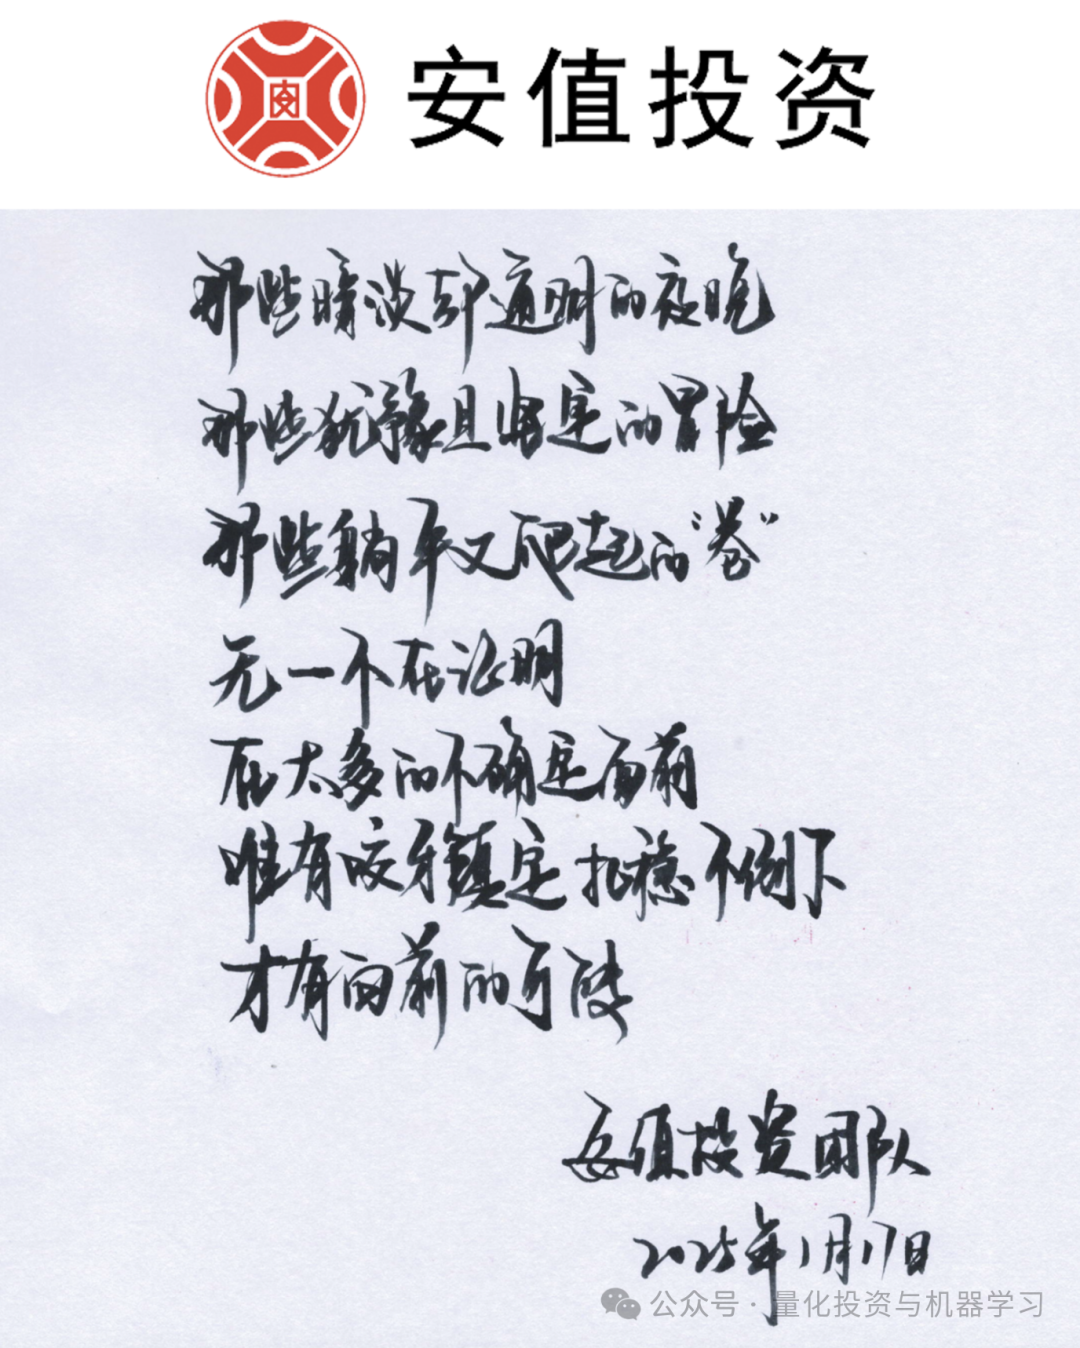 安值投资
那些暗淡却通明的夜晚
那些犹豫且坚定的冒险
那些躺平又爬起的“卷”
无一个在证明
在太多的不确定面前
唯有咬牙镇定扎稳不倒下
才有向前的可能
安值投资团队
2025年1月17日
公众号·量化投资与机器学习